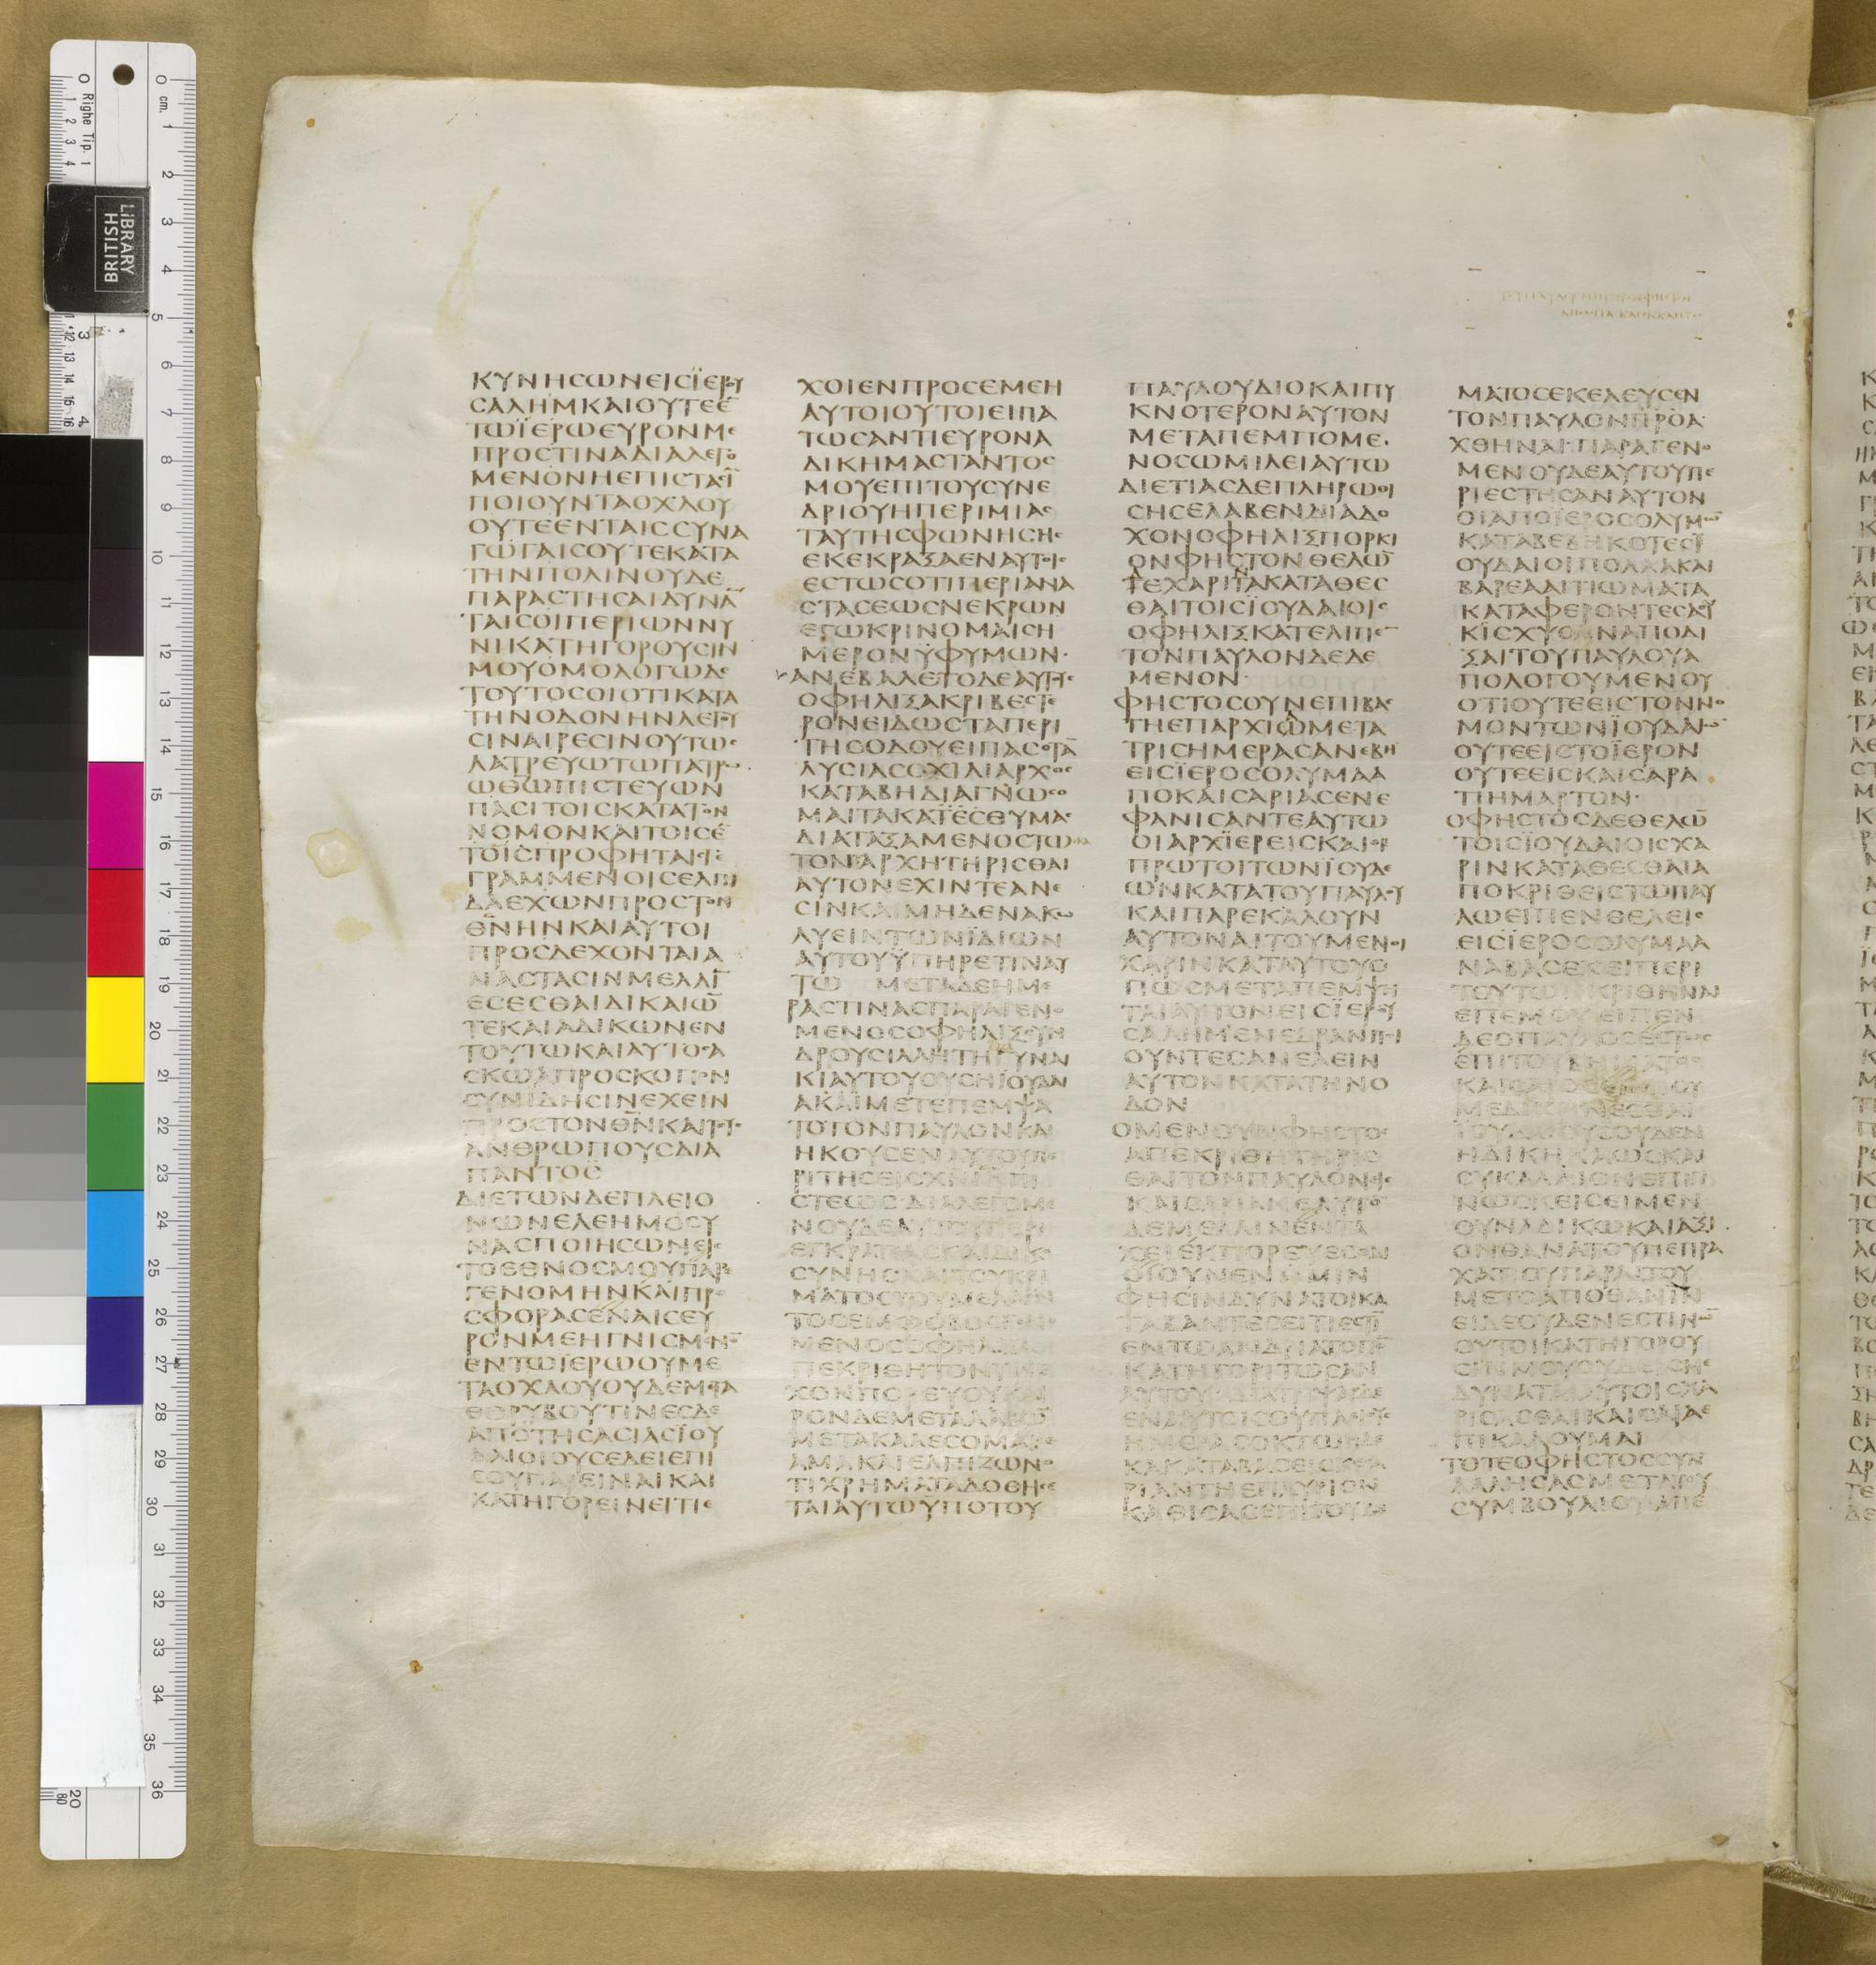 ΚΥΝΗϹΩΝΕΙϹΪΕΡΟΥ
ϹΑΛΗΜΚΑΙΟΥΤΕΕ̅
ΤΩΪΕΡΩΕΥΡΟΝΜΕ
ΠΡΟϹΤΙΝΑΔΙΑΛΕΓΟ
ΜΕΝΟΝΗΕΠΙϹΤΑϹΙ̅
ΠΟΙΟΥΝΤΑΟΧΛΟΥ
ΟΥΤΕΕΝΤΑΙϹϹΥΝΑ
ΓΩΓΑΙϹΟΥΤΕΚΑΤΑ
ΤΗΝΠΟΛΙΝΟΥΔΕ
ΠΑΡΑϹΤΗϹΑΙΔΥΝΑ̅
ΤΑΙϹΟΙΠΕΡΙΩΝΝΥ
ΝΙΚΑΤΗΓΟΡΟΥϹΙΝ
ΜΟΥΟΜΟΛΟΓΩΔΕ
ΤΟΥΤΟϹΟΙΟΤΙΚΑΤΑ
ΤΗΝΟΔΟΝΗΝΛΕΓΟΥ
ϹΙΝΑΙΡΕϹΙΝΟΥΤΩϹ
ΛΑΤΡΕΥΩΤΩΠΑΤΡΩ
ΩΘΩΠΙϹΤΕΥΩΝ
ΠΑϹΙΤΟΙϹΚΑΤΑΤΟΝ
ΝΟΜΟΝΚΑΙΤΟΙϹΕ̅
ΤΟΙϹΠΡΟΦΗΤΑΙϹΓΕ
ΓΡΑΜΜΕΝΟΙϹΕΛΠΙ
ΔΑΕΧΩΝΠΡΟϹΤΟΝ
Θ̅Ν̅ΗΝΚΑΙΑΥΤΟΙ
ΠΡΟϹΔΕΧΟΝΤΑΙΑ
ΝΑϹΤΑϹΙΝΜΕΛΛΙ̅
ΕϹΕϹΘΑΙΔΙΚΑΙΩ̅
ΤΕΚΑΙΑΔΙΚΩΝΕΝ
ΤΟΥΤΩΚΑΙΑΥΤΟϹΑ
ϹΚΩΑΠΡΟϹΚΟΠΟΝ
ϹΥΝΙΔΗϹΙΝΕΧΕΙΝ
ΠΡΟϹΤΟΝΘ̅Ν̅ΚΑΙΤΟΥϹ
ΑΝΘΡΩΠΟΥϹΔΙΑ
ΠΑΝΤΟϹ
ΔΙΕΤΩΝΔΕΠΛΕΙΟ
ΝΩΝΕΛΕΗΜΟϹΥ
ΝΑϹΠΟΙΗϹΩΝΕΙϹ
ΤΟΕΘΝΟϹΜΟΥΠΑΡΕ
ΓΕΝΟΜΗΝΚΑΙΠΡΟ
ϹΦΟΡΑϹΕΝΑΙϹΕΥ
ΡΟΝΜΕΗΓΝΙϹΜΕΝΟ̅
ΕΝΤΩΪΕΡΩΟΥΜΕ
ΤΑΟΧΛΟΥΟΥΔΕΜΕΤΑ
ΘΟΡΥΒΟΥΤΙΝΕϹΔΕ
ΑΠΟΤΗϹΑϹΙΑϹΪΟΥ
ΔΑΙΟΙΟΥϹΕΔΕΙΕΠΙ
ϹΟΥΠΑΡΕΙΝΑΙΚΑΙ
ΚΑΤΗΓΟΡΕΙΝΕΙΤΙΕ
ΧΟΙΕΝΠΡΟϹΕΜΕΗ
ΑΥΤΟΙΟΥΤΟΙΕΙΠΑ
ΤΩϹΑΝΤΙΕΥΡΟΝΑ
ΔΙΚΗΜΑϹΤΑΝΤΟϹ
ΜΟΥΕΠΙΤΟΥϹΥΝΕ
ΔΡΙΟΥΗΠΕΡΙΜΙΑϹ
ΤΑΥΤΗϹΦΩΝΗϹΗϹ
ΕΚΕΚΡΑΞΑΕΝΑΥΤΟΙϹ
ΕϹΤΩϹΟΤΙΠΕΡΙΑΝΑ
ϹΤΑϹΕΩϹΝΕΚΡΩΝ
ΕΓΩΚΡΙΝΟΜΑΙϹΗ
ΜΕΡΟΝΥΦΥΜΩΝ·
ΑΝΕΒΑΛΕΤΟΔΕΑΥΤΟΥϹ
ΟΦΗΛΙΞΑΚΡΙΒΕϹΤΕ
ΡΟΝΕΙΔΩϹΤΑΠΕΡΙ
ΤΗϹΟΔΟΥΕΙΠΑϹΟΤΑ̅
ΛΥϹΙΑϹΟΧΙΛΙΑΡΧΟϹ
ΚΑΤΑΒΗΔΙΑΓΝΩϹΟ
ΜΑΙΤΑΚΑΤΕϹΘΥΜΑϹ
ΔΙΑΤΑΞΑΜΕΝΟϹΤΩ
ΤΟΝΤΑΡΧΗΤΗΡΙϹΘΑΙ
ΑΥΤΟΝΕΧΙΝΤΕΑΝΕ
ϹΙΝΚΑΙΜΗΔΕΝΑΚΩ
ΛΥΕΙΝΤΩΝΪΔΙΩΝ
ΑΥΤΟΥΫΠΗΡΕΤΙΝΑΥ
ΤΩ ΜΕΤΑΔΕΗΜΕ
ΡΑϹΤΙΝΑϹΠΑΡΑΓΕΝΟ
ΜΕΝΟϹΟΦΗΛΙΞϹΥΝ
ΔΡΟΥϹΙΛΛΗΤΗΓΥΝΑΙ
ΚΙΑΥΤΟΥΟΥϹΗΪΟΥΔΑΙ
ΑΚΑΙΜΕΤΕΠΕΜΨΑ
ΤΟΤΟΝΠΑΥΛΟΝΚΑΙ
ΗΚΟΥϹΕΝΑΥΤΟΥΠΕ
ΡΙΤΗϹΕΙϹΧ̅Ν̅Ι̅Ν̅ΠΙ
ϹΤΕΩϹΔΙΑΛΕΓΟΜΕ
ΝΟΥΔΕΑΥΤΟΥΠΕΡΙ
ΕΓΚΡΑΤΙΑϹΚΑΙΔΙΚΕΟ
ϹΥΝΗϹΚΑΙΤΟΥΚΡΙ
ΜΑΤΟϹΤΟΥΜΕΛΛΟΝ
ΤΟϹΕΜΦΟΒΟϹΓΕΝΟ
ΜΕΝΟϹΟΦΗΛΙΞΑ
ΠΕΚΡΙΘΗΤΟΝΥΝΕ
ΧΟΝΠΟΡΕΥΟΥΚΑΙ
ΡΟΝΔΕΜΕΤΑΛΑΒΩ̅
ΜΕΤΑΚΑΛΕϹΟΜΑΙϹΕ
ΑΜΑΚΑΙΕΛΠΙΖΩΝΟ
ΤΙΧΡΗΜΑΤΑΔΟΘΗϹΕ
ΤΑΙΑΥΤΩΫΠΟΤΟΥ
ΠΑΥΛΟΥΔΙΟΚΑΙΠΥ
ΚΝΟΤΕΡΟΝΑΥΤΟΝ
ΜΕΤΑΠΕΜΠΟΜΕ
ΝΟϹΩΜΙΛΕΙΑΥΤΩ
ΔΙΕΤΙΑϹΔΕΠΛΗΡΩΘΙ
ϹΗϹΕΛΑΒΕΝΔΙΑΔΟ
ΧΟΝΟΦΗΛΙΞΠΟΡΚΙ
ΟΝΦΗϹΤΟΝΘΕΛΩ̅
ΤΕΧΑΡΙΤΑΚΑΤΑΘΕϹ
ΘΑΙΤΟΙϹΪΟΥΔΑΙΟΙϹ
ΟΦΗΛΙΞΚΑΤΕΛΙΠΕ̅
ΤΟΝΠΑΥΛΟΝΔΕΔΕ
ΜΕΝΟΝ·
ΦΗϹΤΟϹΟΥΝΕΠΙΒΑϹ
ΤΗΕΠΑΡΧΙΩΜΕΤΑ
ΤΡΙϹΗΜΕΡΑϹΑΝΕΒΗ
ΕΙϹΪΕΡΟϹΟΛΥΜΑΑ
ΠΟΚΑΙϹΑΡΙΑϹΕΝΕ
ΦΑΝΙϹΑΝΤΕΑΥΤΩ
ΟΙΑΡΧΪΕΡΕΙϹΚΑΙΟΙ
ΠΡΩΤΟΙΤΩΝΪΟΥΔΑΙ
ΩΝΚΑΤΑΤΟΥΠΑΥΛΟΥ
ΚΑΙΠΑΡΕΚΑΛΟΥΝ
ΑΥΤΟΝΑΙΤΟΥΜΕΝΟΙ
ΧΑΡΙΝΚΑΤΑΥΤΟΥΟ
ΠΩϹΜΕΤΑΠΕΜΨΗ
ΤΑΙΑΥΤΟΝΕΙϹΪΕΡΟΥ
ϹΑΛΗΜΕΝΕΔΡΑΝΠΟΙ
ΟΥΝΤΕϹΑΝΕΛΕΙΝ
ΑΥΤΟΝΚΑΤΑΤΗΝΟ
ΔΟΝ
ΟΜΕΝΟΥΝΦΗϹΤΟϹ
ΑΠΕΚΡΙΘΗΤΗΡΙϹ
ΘΑΙΤΟΝΠΑΥΛΟΝΕΙϹ
ΚΑΙϹΑΡΙΑΝΕΑΥΤΟ̅
ΔΕΜΕΛΛΙΝΕΝΤΑ
ΧΕΙΕΚΠΟΡΕΥΕϹΘΑΙ
ΟΙΟΥΝΕΝΥΜΙΝ
ΦΗϹΙΝΔΥΝΑΤΟΙΚΑ
ΤΑΒΑΝΤΕϹΕΙΤΙΕϹΤΙ̅
ΕΝΤΩΑΝΔΡΙΑΤΟΠΟ̅
ΚΑΤΗΓΟΡΙΤΩϹΑΝ
ΑΥΤΟΥΔΙΑΤΡΙΨΑϹΔΕ
ΕΝΑΥΤΟΙϹΟΥΠΛΙΟΥϹ
ΗΜΕΡΑϹΟΚΤΩΗΔΕ
ΚΑΚΑΤΑΒΑϹΕΙϹΚΕϹΑ
ΡΙΑΝΤΗΕΠΑΥΡΙΟΝ
ΚΑΘΙϹΑϹΕΠΙΤΟΥΒΗ
ΜΑΤΟϹΕΚΕΛΕΥϹΕΝ
ΤΟΝΠΑΥΛΟΝΠΡΟΑ
ΧΘΗΝΑΙ·ΠΑΡΑΓΕΝΟ
ΜΕΝΟΥΔΕΑΥΤΟΥΠΕ
ΡΙΕϹΤΗϹΑΝΑΥΤΟΝ
ΟΙΑΠΟΪΕΡΟϹΟΛΥΜΩ̅
ΚΑΤΑΒΕΒΗΚΟΤΕϹΪ
ΟΥΔΑΙΟΙΠΟΛΛΑΚΑΙ
ΒΑΡΕΑΑΙΤΙΩΜΑΤΑ
ΚΑΤΑΦΕΡΟΝΤΕϹΑΟΥ
ΚΙϹΧΥΟΝΑΠΟΔΙ
ΞΑΙΤΟΥΠΑΥΛΟΥΑ
ΠΟΛΟΓΟΥΜΕΝΟΥ
ΟΤΙΟΥΤΕΕΙϹΤΟΝΝΟ
ΜΟΝΤΩΝΪΟΥΔΑΙΩ̅
ΟΥΤΕΕΙϹΤΟΪΕΡΟΝ
ΟΥΤΕΕΙϹΚΑΙϹΑΡΑ
ΤΙΗΜΑΡΤΟΝ·
ΟΦΗϹΤΟϹΔΕΘΕΛΩ̅
ΤΟΙϹΪΟΥΔΑΙΟΙϹΧΑ
ΡΙΝΚΑΤΑΘΕϹΘΑΙΑ
ΠΟΚΡΙΘΕΙϹΤΩΠΑΥ
ΛΩΕΙΠΕΝΘΕΛΕΙϹ
ΕΙϹΪΕΡΟϹΟΛΥΜΑΑ
ΝΑΒΑϹΕΚΕΙΠΕΡΙ
ΤΟΥΤΩΝΚΡΙΘΗΝΑΙ
ΕΠΕΜΟΥΕΙΠΕΝ
ΔΕΟΠΑΥΛΟϹΕϹΤΩϹ
ΕΠΙΤΟΥΒΗΜΑΤΟϹ
ΜΕΔΙΚΡΙΝΕϹΘΑΙ
ΪΟΥΔΑΙΟΥϹΟΥΔΕΝ
ΗΔΙΚΗΚΑΩϹΚΑΙ
ϹΥΚΑΛΛΙΟΝΕΠΙΓΙ
ΝΩϹΚΕΙϹΕΙΜΕΝ
ΟΥΝΑΔΙΚΩΚΑΙΑΞΙ
ΟΝΘΑΝΑΤΟΥΠΕΠΡΑ
ΧΑΤΙΟΥΠΑΡΑΙΤΟΥ
ΜΕΤΟΑΠΟΘΑΝΙΝ
ΕΙΔΕΟΥΔΕΝΕϹΤΙΝΩ̅
ΟΥΤΟΙΚΑΤΗΓΟΡΟΥ
ϹΙΝΜΟΥΟΥΔΕΙϹΜΕ
ΔΥΝΑΤΑΙΑΥΤΟΙϹΧΑ
ΡΙϹΑϹΘΑΙΚΑΙϹΑΡΑΕ
ΠΙΚΑΛΟΥΜΑΙ
ΤΟΤΕΟΦΗϹΤΟϹϹΥΝ
ΛΑΛΗϹΑϹΜΕΤΑΤΟΥ
ϹΥΜΒΟΥΛΙΟΥΑΠΕ